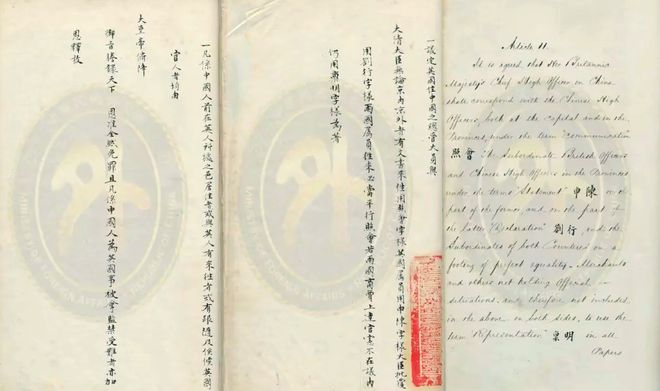 一議定英國住中國之總管大員與
大清大臣無論京內京外者有文書來往用照會字樣英國屬員用申陳字樣大臣批覆
用劄行字樣兩國屬員往來必當平行照會若兩國商賈上達官憲不在議內
仍用稟明字樣為著
一凡係中國人前在英人所據之邑居住者或與英人有來往者或有跟隨及俟候英國
官人者均由
大皇帝俯降
御旨謄錄天下恩准全然免罪且凡係中國人為英國事被拿監禁受難者亦加
恩釋放
Article 11.
It is agreed that Her Britannic
Majesty's Chief High Officer in China
shall correspond with the Chinese High
Officers, both at the Capital and in the
Provinces, under the term "Communication"
照會 The Subordinate British Officers
and Chinese High Officers in the Provinces
under the terms "Statement" 申陳 on the
part of the former, and on the part of
the latter "Declaration" 劄行 and the
Subordinates of both Countries on a
footing of perfect equality – Merchants
and others not holding Official
situations, and therefore not included
in the above, on both sides, to use the
term "Representation" 稟明 in all
Papers